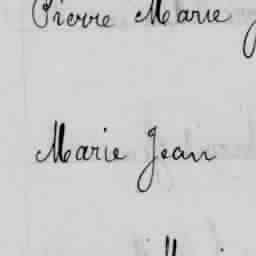 Pierre Marie
Marie Jean